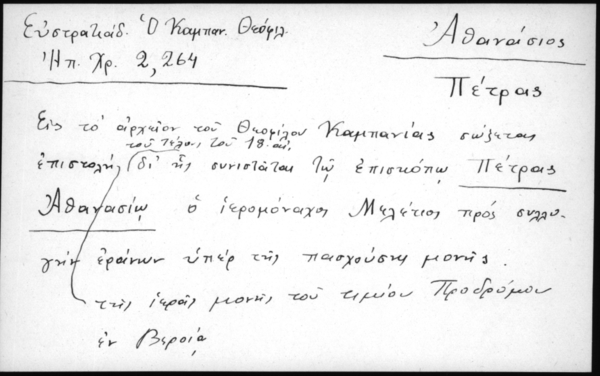 Εὐστρατιάδ. Ὁ Καμπαν. Θεόφιλ.
Ἠπ. Χρ. 2, 264
Ἀθανάσιος
Πέτρας
Εἰς τὸ ἀρχεῖον τοῦ Θεοφίλου Καμπανίας σώζεται
τοῦ τέλους τοῦ 18. αἰ.
ἐπιστολὴ δι' ἧς συνιστᾶται τῷ ἐπισκόπῳ Πέτρας
Ἀθανασίῳ ὁ ἱερομόναχος Μελέτιος πρὸς συλλο-
γὴν ἐράνων ὑπὲρ τῆς πασχούσης μονῆς.
τῆς ἱερᾶς μονῆς τοῦ τιμίου Προδρόμου
ἐν Βεροίᾳ